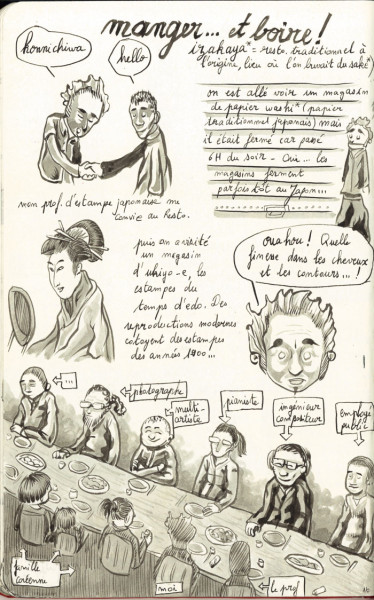 manger... et boire!
izakaya* = resto. traditionnel à
l'origine, lieu où l'on buvait du saké*
konnichiwa
hello
on est allé voir un magasin
de papier washi* (papier
traditionnel japonais) mais
il était fermé car passé
6H du soir - Oui... les
magasins ferment
parfois tôt au Japon...
mon prof. d'estampe japonaise me
convie au resto.
puis on a visité
un magasin
d'ukiyo-e, les
estampes du
temps d'edo. Des
reproductions modernes
cotoyent des estampes
des années 1800...
ouahou! Quelle
finesse dans les cheveux
et les contours...!
...
photographe
multi-
artiste
pianiste
ingénieur
compositeur
employé
public
famille
coréenne
moi
le prof